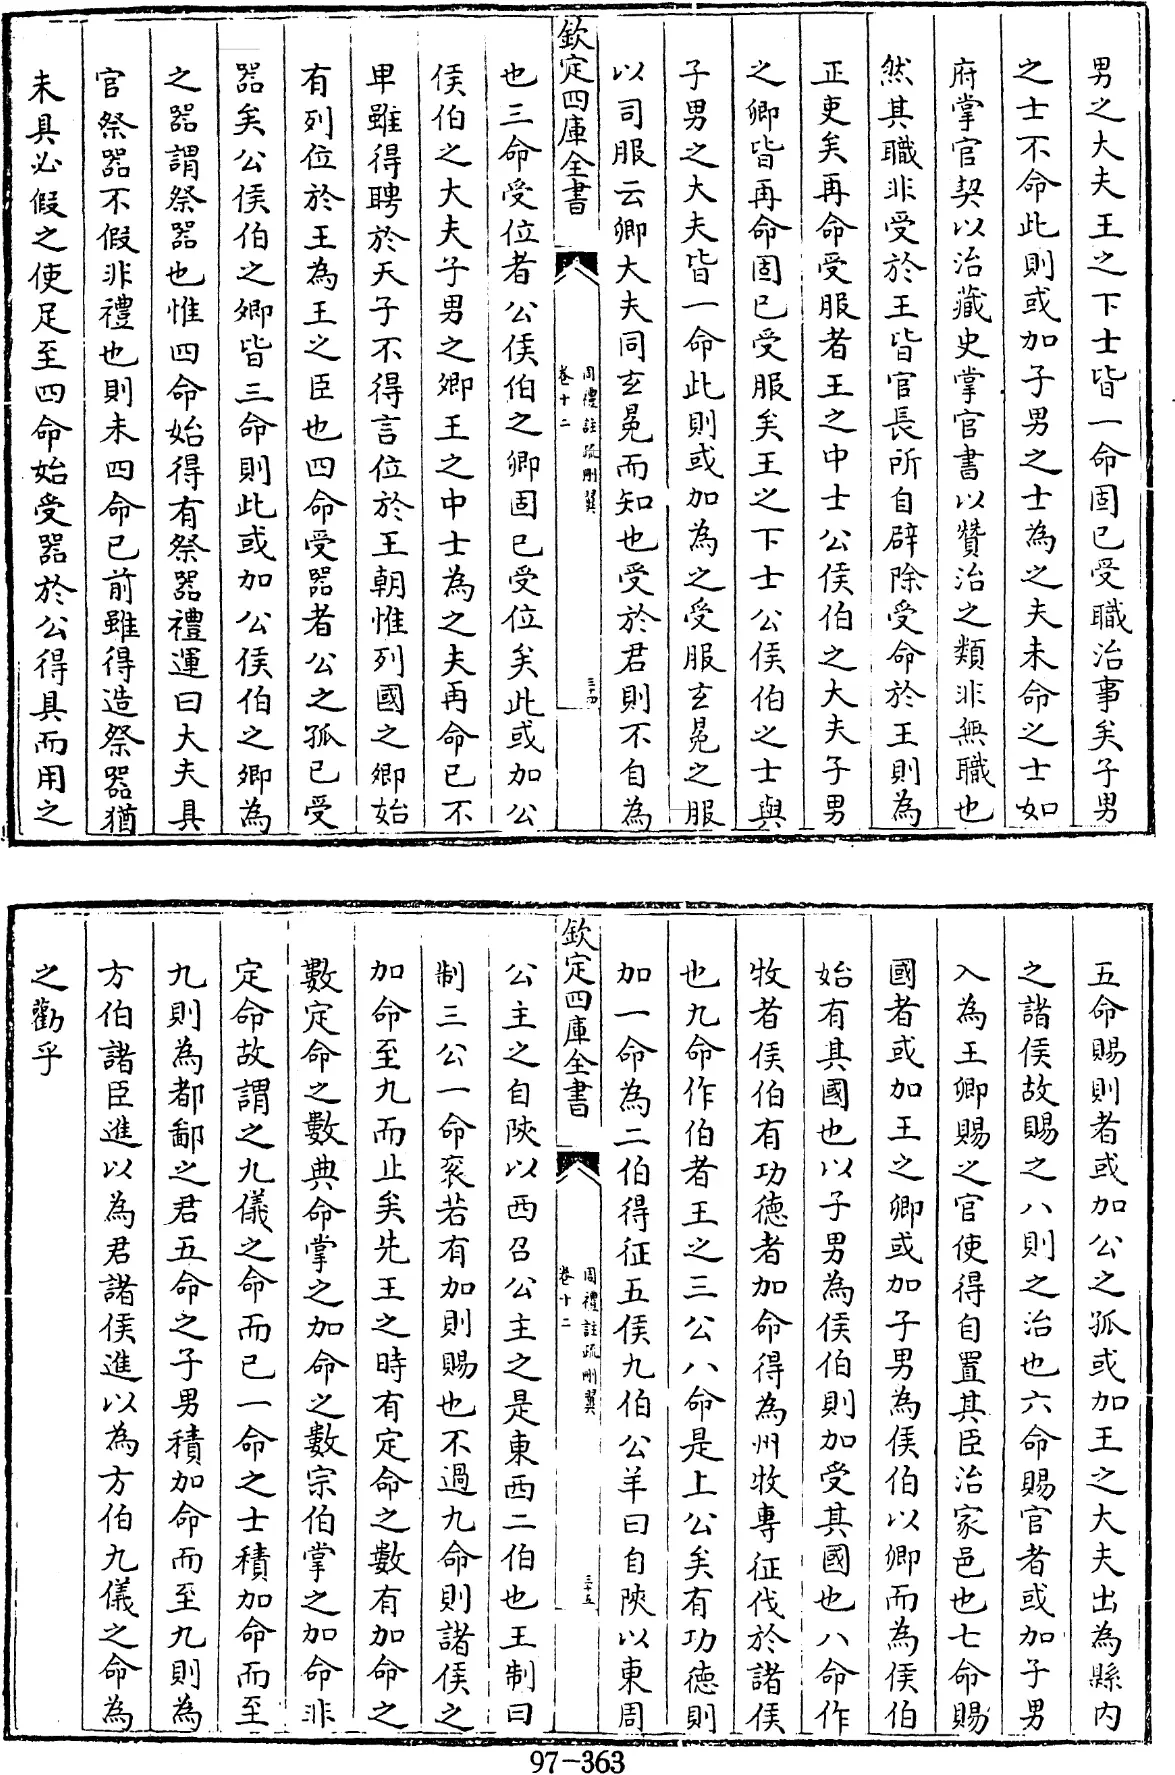 男之大夫王之下士皆一命固已受職治事矣子男
之士不命此則或加子男之士為之夫未命之士如
府掌官契以治藏史掌官書以贊治之類非無職也
然其職非受於王皆官長所自辟除受命於王則為
正吏矣再命受服者王之中士公侯伯之大夫子男
之卿皆再命固已受服矣王之下士公侯伯之士與
子男之大夫皆一命此則或加為之受服玄冕之服
以司服云卿大夫同玄冕而知也受於君則不自為
欽定四庫全書
周禮註疏刪翼
卷十二
三十四
也三命受位者公侯伯之卿固已受位矣此或加公
侯伯之大夫子男之卿王之中士為之夫再命已不
卑雖得聘於天子不得言位於王朝惟列國之卿始
有列位於王為王之臣也四命受器者公之孤已受
器矣公侯伯之卿皆三命則此或加公侯伯之卿為
之器謂祭器也惟四命始得有祭器禮運曰大夫具
官祭器不假非禮也則未四命已前雖得造祭器猶
未具必假之使足至四命始受器於公得具而用之
五命賜則者或加公之孤或加王之大夫出為縣内
之諸侯故賜之八則之治也六命賜官者或加子男
入為王卿賜之官使得自置其臣治家邑也七命賜
國者或加王之卿或加子男為侯伯以卿而為侯伯
始有其國也以子男為侯伯則加受其國也八命作
牧者侯伯有功德者加命得為州牧專征伐於諸侯
也九命作伯者王之三公八命是上公矣有功德則
加一命為二伯得征五侯九伯公羊曰自陜以東周
欽定四庫全書
周禮註疏刪翼
卷十二
三十五
公主之自陜以西召公主之是東西二伯也王制曰
制三公一命衮若有加則賜也不過九命則諸侯之
加命至九而止矣先王之時有定命之數有加命之
數定命之數典命掌之加命之數宗伯掌之加命非
定命故謂之九儀之命而已一命之士積加命而至
九則為都鄙之君五命之子男積加命而至九則為
方伯諸臣進以為君諸侯進以為方伯九儀之命為
之勸乎
97-363